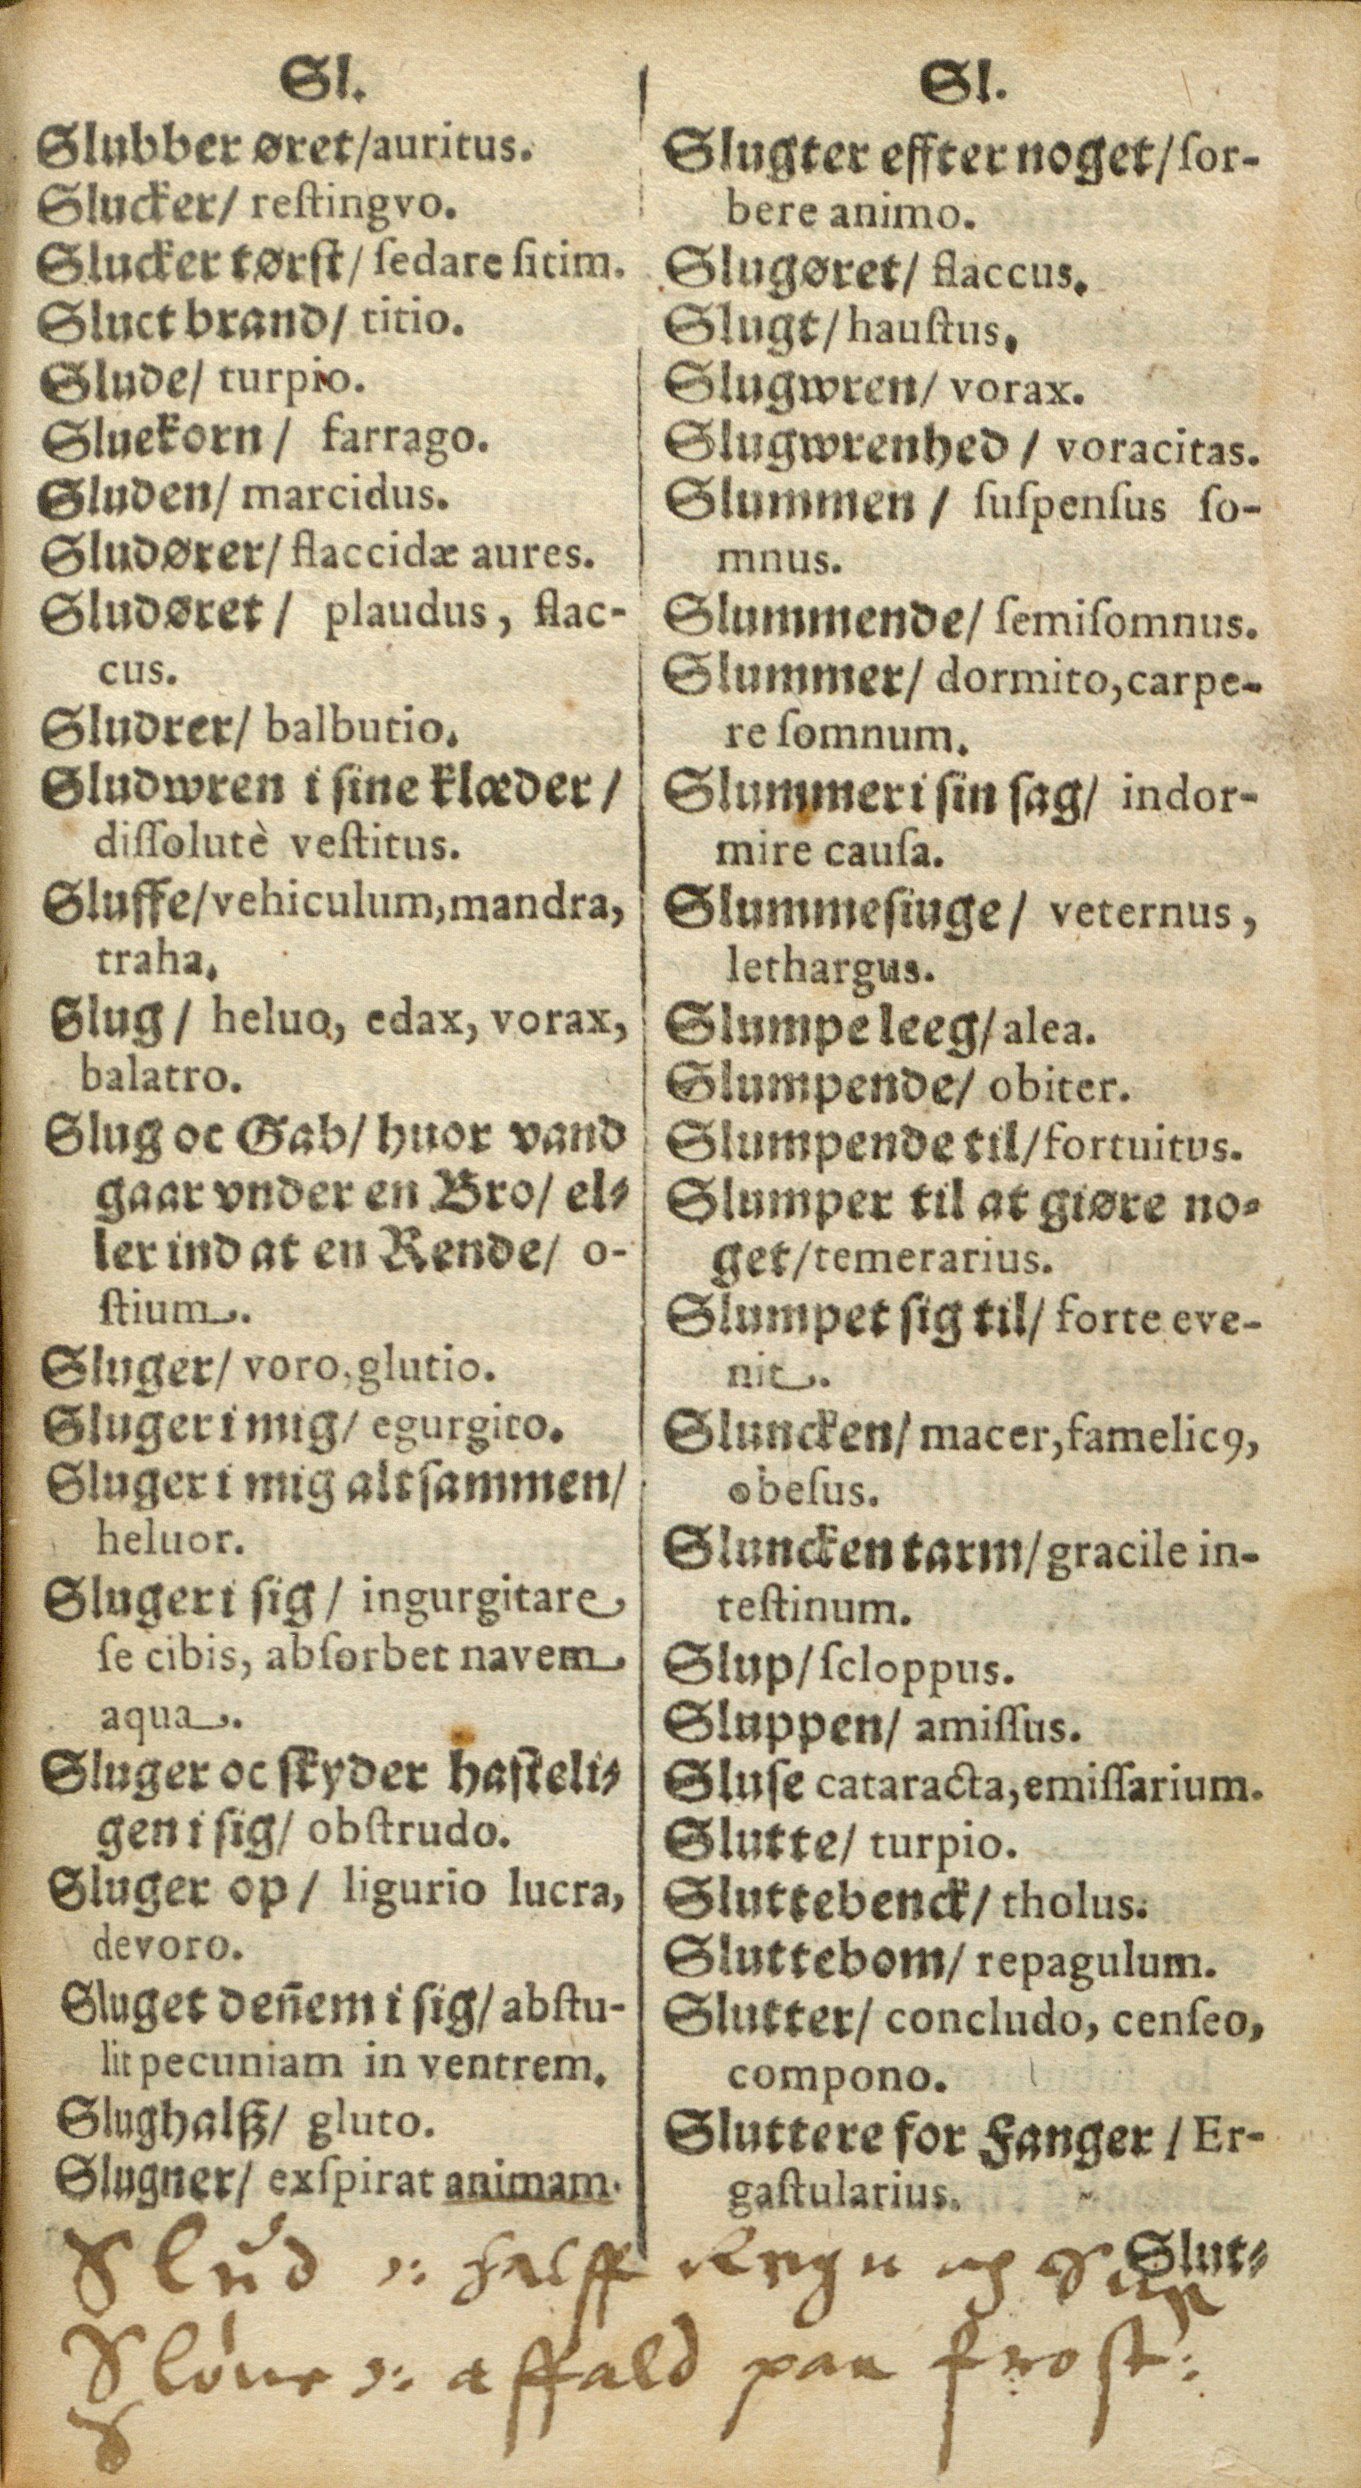 Sl.
Slubber øret/auritus.
Slucker/ reſtingvo.
Slucker tørſt/ ſedare ſitim.
Sluct brand/ titio.
Slude/ turpio.
Sluekorn/ farrago.
Sluden/ marcidus.
Sludører/ flaccidæ aures.
Sludøret/ plaudus, flac-
cus.
Sludrer/ balbutio.
Sludwren i ſine klæder/
diſſolutè veſtitus.
Sluffe/vehiculum,mandra,
traha.
Slug/ heluo, edax, vorax,
balatro.
Slug oc Gab/ huor vand
gaar vnder en Bro/ el⸗
ler ind at en Rende/ o-
ſtium.
Sluger/ voro,glutio.
Sluger i mig/ egurgito.
Sluger i mig altſammen/
heluor.
Sluger i ſig/ ingurgitare
ſe cibis, abſorbet navem
aqua.
Sluger oc ſkyder haſteli⸗
gen i ſig/ obſtrudo.
Sluger op/ ligurio lucra,
devoro.
Sluget deñem i ſig/ abſtu-
lit pecuniam in ventrem.
Slughalß/ gluto.
Slugner/ exſpirat animam.
Sl.
Slugter effter noget/ſor-
bere animo.
Slugøret/ flaccus.
Slugt/hauſtus.
Slugwren/ vorax.
Slugwrenhed/ voracitas.
Slummen/ ſuſpenſus ſo-
mnus.
Slummende/ ſemiſomnus.
Slummer/ dormito,carpe-
re ſomnum.
Slummer i ſin ſag/ indor-
mire cauſa.
Slummeſiuge/ veternus,
lethargus.
Slumpe leeg/alea.
Slumpende/ obiter.
Slumpende til/fortuitvs.
Slumper til at giøre no⸗
get/temerarius.
Slumpet ſig til/ forte eve-
nit.
Sluncken/macer,famelicꝰ,
obeſus.
Sluncken tarm/gracile in-
teſtinum.
Slup/ſcloppus.
Sluppen/ amiſſus.
Sluſe cataracta,emiſſarium.
Slutte/ turpio.
Sluttebenck/ tholus.
Sluttebom/ repagulum.
Slutter/ concludo, cenſeo,
compono.
Sluttere for Fanger/ Er-
gaſtularius.
Slut⸗
Slud ɔ: halff Regn og Snee
affald paa froſt: